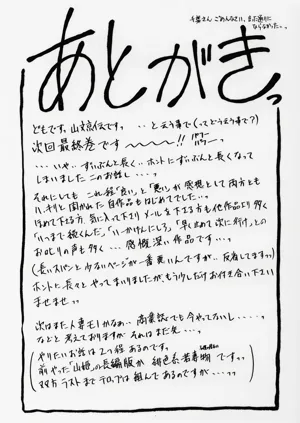 千葉さん ごめんなさい、まだ海に
ならなかった…。
あとがきっ
どもです。山文京伝ですっ ‥と云う事で(ってどうゆう事で?)
次回最終巻です〜〜〜!! パフーパフー…。
…いや‥ずいぶんと長く‥ホントにずいぶんと長くなって
しまいました このお話し…。
それにしても これ程「良い」と「悪い」が感想として両方とも
ハッキリと聞かれた自作品もはじめてでした…。
ほめて下さる方、気に入って下さりメールを下さる方も他作品より多く
「いつまで続くんだ」「いーかげんにしろ」「早く次に行け」との
お叱りの声も多く…感慨深い作品です…っ
(長いスパンと少ないページが一番悪いんですが‥反省してますっ)
ホントに長々と やってまいりましたが、もう少しだけお付き合い下さい
ませませっっ
次はまた人妻モノかなぁ…商業誌でも今やってないし・・・・っ
などと 考えておりますが それはまた先…っ
やりたいお話は2つ程あるのです。
前やった「山姫」の長編版か 紺色系若妻物 ですっっ
双方ラストまでプロットは組んであるのですが・・・っっ